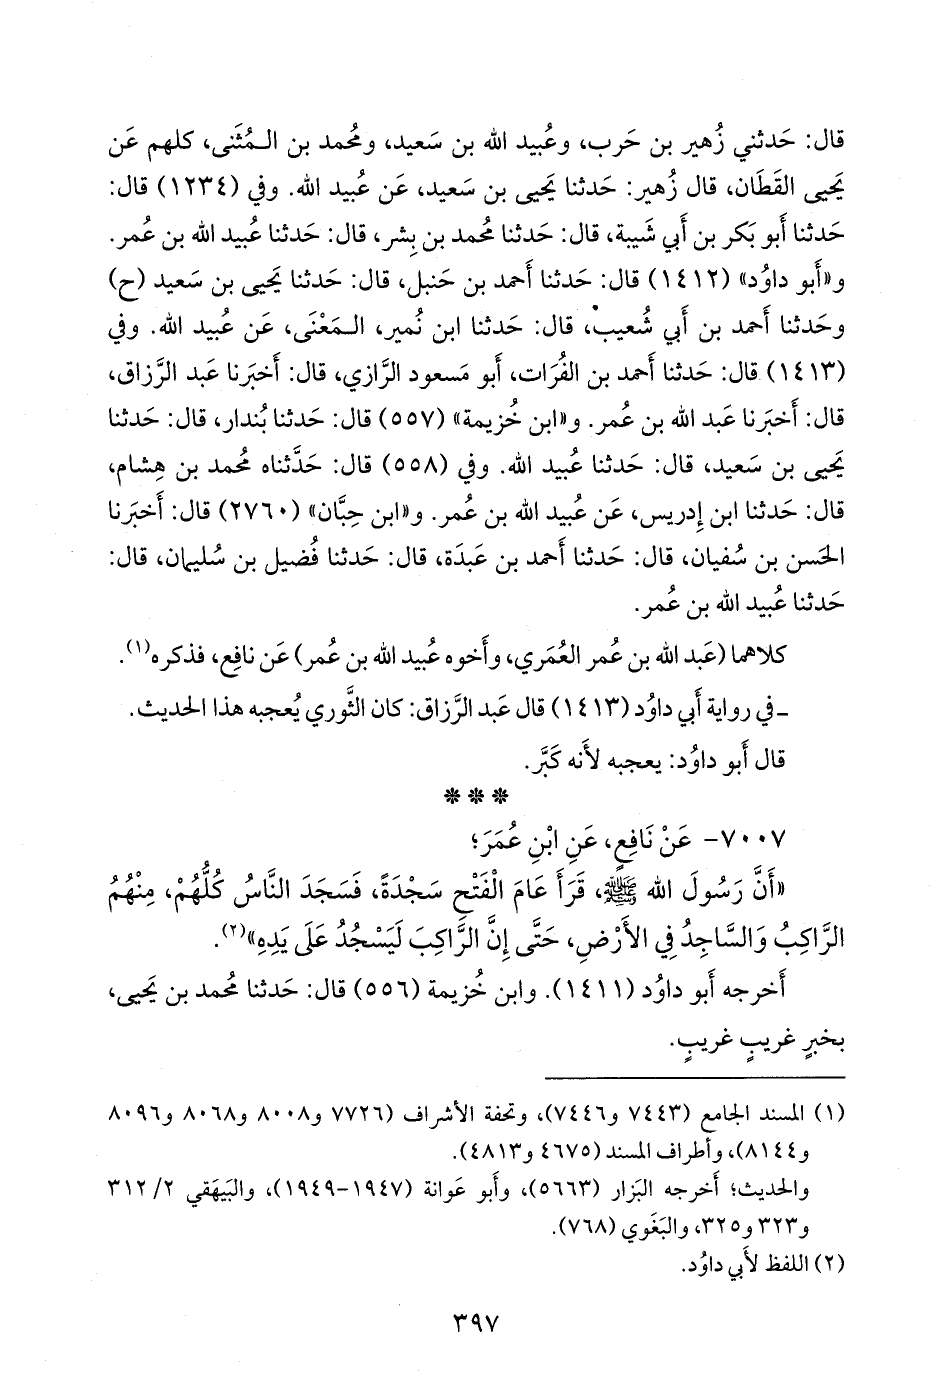 قال: حَدثني زُهير بن حَرب، وعُبيد الله بن سَعيد، ومُحمد بن الـمُثَنى، كلهم عَن
يَحيى القَطَان، قال زُهير: حَدثنا يَحيى بن سَعيد، عَن عُبيد الله. وفي (١٢٣٤) قال:
حَدثنا أَبو بَكر بن أَبي شَيبة، قال: حَدثنا مُحمد بن بِشر، قال: حَدثنا عُبيد الله بن عُمر.
و«أَبو داوُد» (١٤١٢) قال: حَدثنا أَحمد بن حَنبل، قال: حَدثنا يَحيى بن سَعيد (ح)
وحَدثنا أَحمد بن أَبي شُعيب، قال: حَدثنا ابن نُمير، الـمَعْنَى، عَن عُبيد الله. وفي
(١٤١٣) قال: حَدثنا أَحمد بن الفُرَات، أَبو مَسعود الرَّازي، قال: أَخبَرنا عَبد الرَّزاق،
قال: أَخبَرنا عَبد الله بن عُمر. و«ابن خُزيمة» (٥٥٧) قال: حَدثنا بُندار، قال: حَدثنا
يَحيى بن سَعيد، قال: حَدثنا عُبيد الله. وفي (٥٥٨) قال: حَدَّثناه مُحمد بن هِشام،
قال: حَدثنا ابن إِدريس، عَن عُبيد الله بن عُمر. و«ابن حِبَّان» (٢٧٦٠) قال: أَخبَرنا
الحَسن بن سُفيان، قال: حَدثنا أَحمد بن عَبدَة، قال: حَدثنا فُضيل بن سُليمان، قال:
حَدثنا عُبيد الله بن عُمر.
كلاهما (عَبد الله بن عُمر العُمَري، وأَخوه عُبيد الله بن عُمر) عَن نافِع، فذكره(١).
ـ في رواية أَبي داوُد (١٤١٣) قال عَبد الرَّزاق: كان الثَّوري يُعجبه هذا الحَديث.
قال أَبو داوُد: يعجبه لأَنه كَبَّر.
* * *
٧٠٠٧- عَنْ نَافِعٍ، عَنِ ابْنِ عُمَرَ؛
«أَنَّ رَسُولَ الله ﷺ، قَرَأَ عَامَ الْفَتْحِ سَجْدَةً، فَسَجَدَ النَّاسُ كُلُّهُمْ، مِنْهُمُ
الرَّاكِبُ وَالسَّاجِدُ فِي الأَرْضِ، حَتَّى إِنَّ الرَّاكِبَ لَيَسْجُدُ عَلَى يَدِهِ»(٢).
أَخرجه أَبو داوُد (١٤١١). وابن خُزيمة (٥٥٦) قال: حَدثنا مُحمد بن يَحيى،
بخبرٍ غريبٍ غريبٍ.
(١) المسند الجامع (٧٤٤٣ و٧٤٤٦)، وتحفة الأشراف (٧٧٢٦ و٨٠٠٨ و٨٠٦٨ و٨٠٩٦
و٨١٤٤)، وأطراف المسند (٤٦٧٥ و٤٨١٣).
والحَديث؛ أخرجه البَزار (٥٦٦٣)، وأبو عَوانة (١٩٤٧-١٩٤٩)، والبَيهَقي ٢/ ٣١٢
و٣٢٣ و٣٢٥، والبَغَوي (٧٦٨).
(٢) اللفظ لأَبي داوُد.
٣٩٧